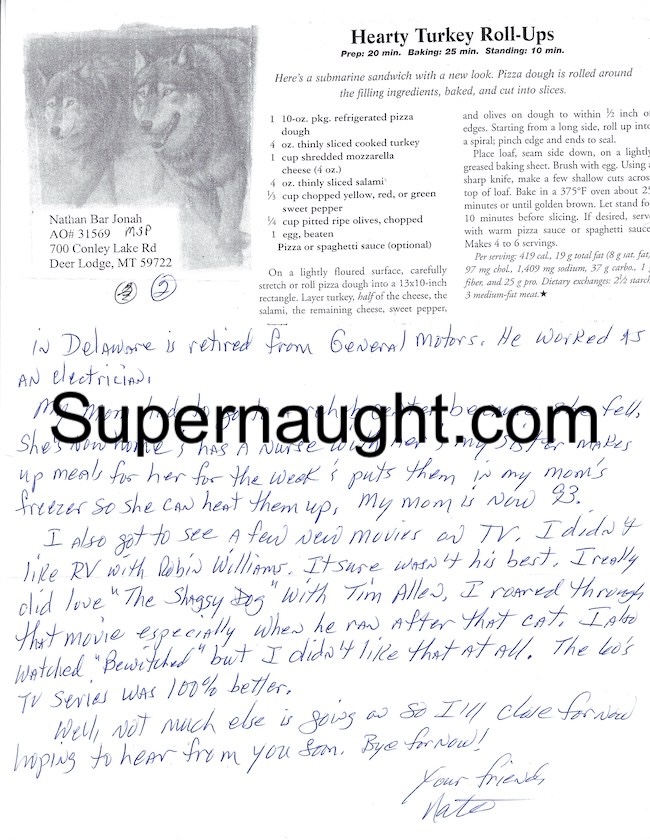 Hearty Turkey Roll-Ups
Prep: 20 min. Baking: 25 min. Standing: 10 min.
Here's a submarine sandwich with a new look. Pizza dough is rolled around
the filling ingredients, baked, and cut into slices.
1 10-oz. pkg. refrigerated pizza
dough
4 oz. thinly sliced cooked turkey
1 cup shredded mozzarella
cheese (4 oz.)
4 oz. thinly sliced salami
⅓ cup chopped yellow, red, or green
sweet pepper
¼ cup pitted ripe olives, chopped
1 egg, beaten
Pizza or spaghetti sauce (optional)
On a lightly floured surface, carefully
stretch or roll pizza dough into a 13x10-inch
rectangle. Layer turkey, half of the cheese, the
salami, the remaining cheese, sweet pepper,
and olives on dough to within ½ inch o
edges. Starting from a long side, roll up into
a spiral; pinch edge and ends to seal.
Place loaf, seam side down, on a lightly
greased baking sheet. Brush with egg. Using
sharp knife, make a few shallow cuts across
top of loaf. Bake in a 375°F oven about 25
minutes or until golden brown. Let stand for
10 minutes before slicing. If desired, serve
with warm pizza sauce or spaghetti sauce
Makes 4 to 6 servings.
Per serving: 419 cal., 19 g total fat (8 g sat. fat,
97 mg chol., 1,409 mg sodium, 37 g carbo., 1 g
fiber, and 25 g pro. Dietary exchanges: 2½ starch
3 medium-fat meat.★
Nathan Bar Jonah
AO# 31569 MSP
700 Conley Lake Rd
Deer Lodge, MT 59722
in Delaware is retired from General Motors. He worked as
an electrician.
My mom had to go to a rehab center because she fell,
She's now home & has a nurse with her & my sister makes
up meals for her for the week & puts them in my mom's
freezer so she can heat them up. My mom is now 93.
I also got to see a few new movies on TV. I didn't
like RV with Robin Williams. It sure wasn't his best. I really
did love "The Shaggy Dog" with Tim Allen. I roared through
that movie especially when he ran after that cat. I also
watched "Bewitched" but I didn't like that at all. The 60's
TV series was 100% better.
Well, not much else is going on so I'll close for now
hoping to hear from you soon. Bye for now!
Your friend,
Nate
Supernaught.com